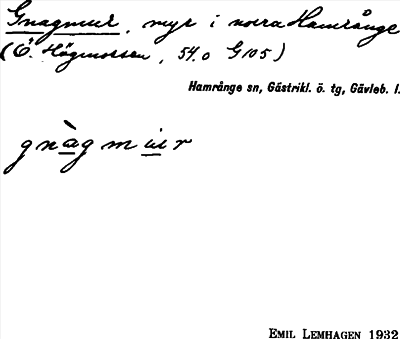 Gnagmur, myr i norra Hamrånge
(Ö. Högmossen, 54.0 G105)
Hamrånge sn, Gästrikl. ö. tg, Gävleb. l.
gnàgmur
EMIL LEMHAGEN 1932